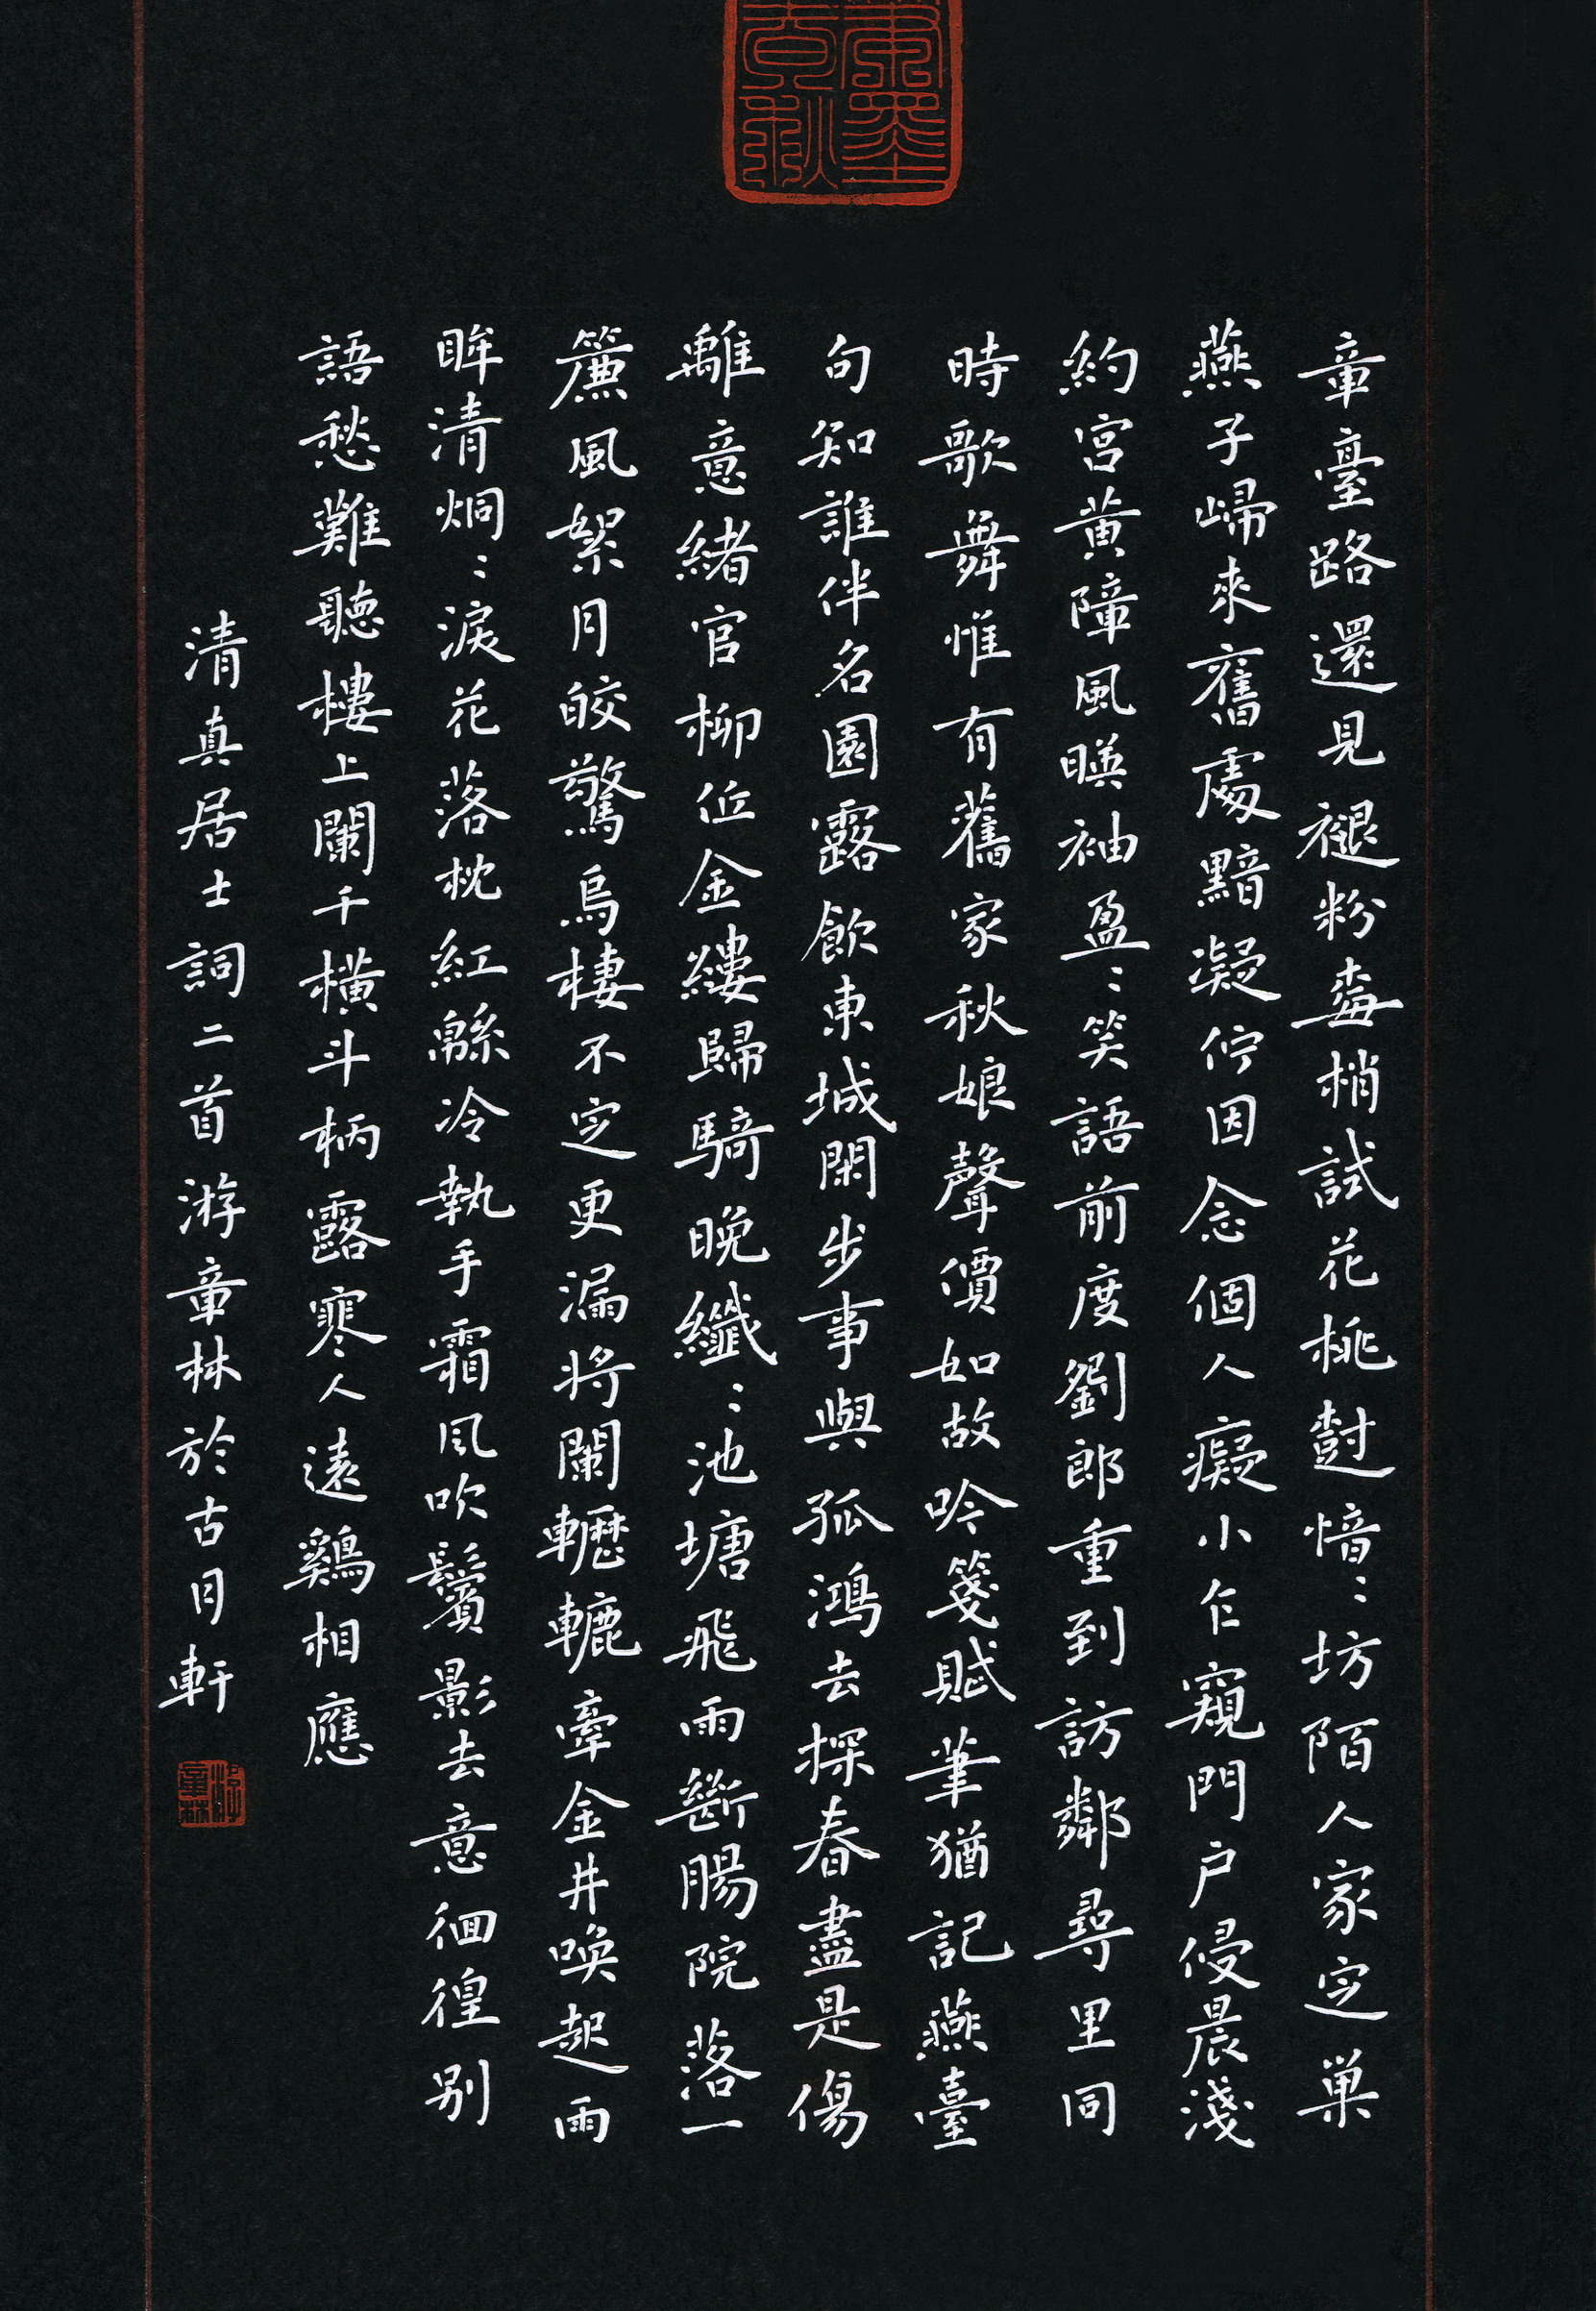 章臺路還見褪粉梅梢試花桃樹愔〻坊陌人家定巢
燕子歸來舊處黯凝佇因念個人癡小乍窺門戶侵晨淺
約宮黃障風暎袖盈〻笑語前度劉郎重到訪鄰尋里同
時歌舞惟有舊家秋娘聲價如故吟箋賦筆猶記燕臺
句知誰伴名園露飲東城閑步事與孤鴻去探春盡是傷
離意緒官柳低金縷歸騎晚纖〻池塘飛雨斷腸院落一
簾風絮月皎驚烏棲不定更漏將闌轣轆牽金井喚起兩
眸清炯〻淚花落枕紅緜冷執手霜風吹鬢影去意徊徨別
語愁難聽樓上闌干橫斗柄露寒人遠鷄相應
清真居士詞二首游章林於古月軒
游章林